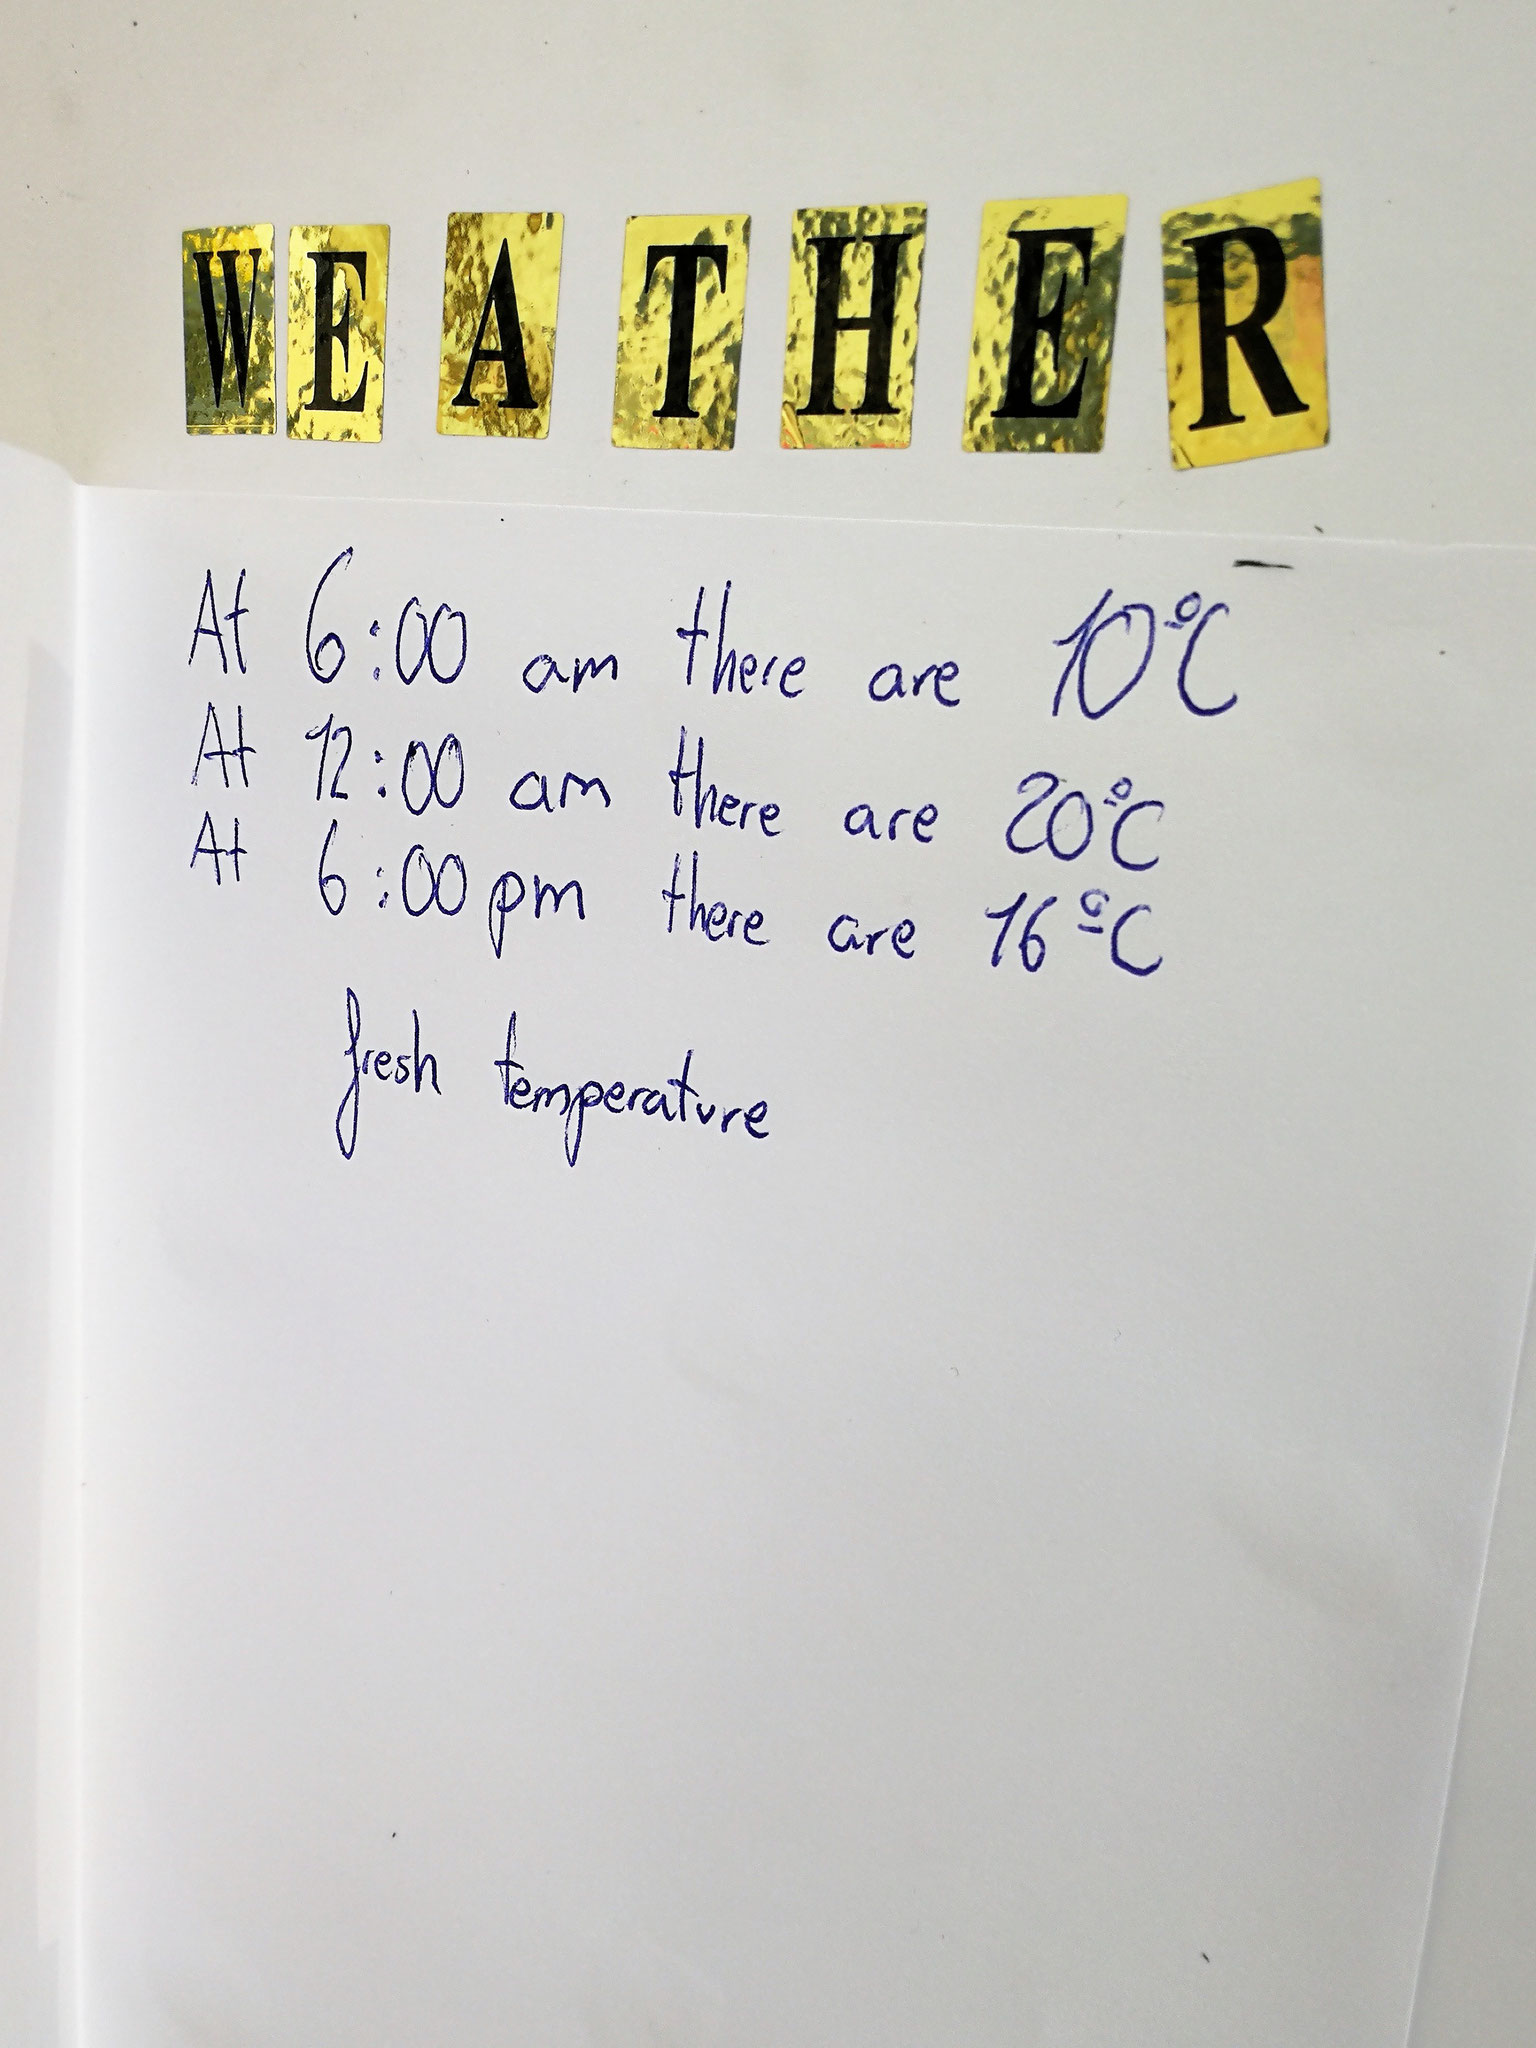 WEATHER
At 6:00 am there are 10ºC
At 12:00 am there are 20ºC
At 6:00 pm there are 16ºC
fresh temperature